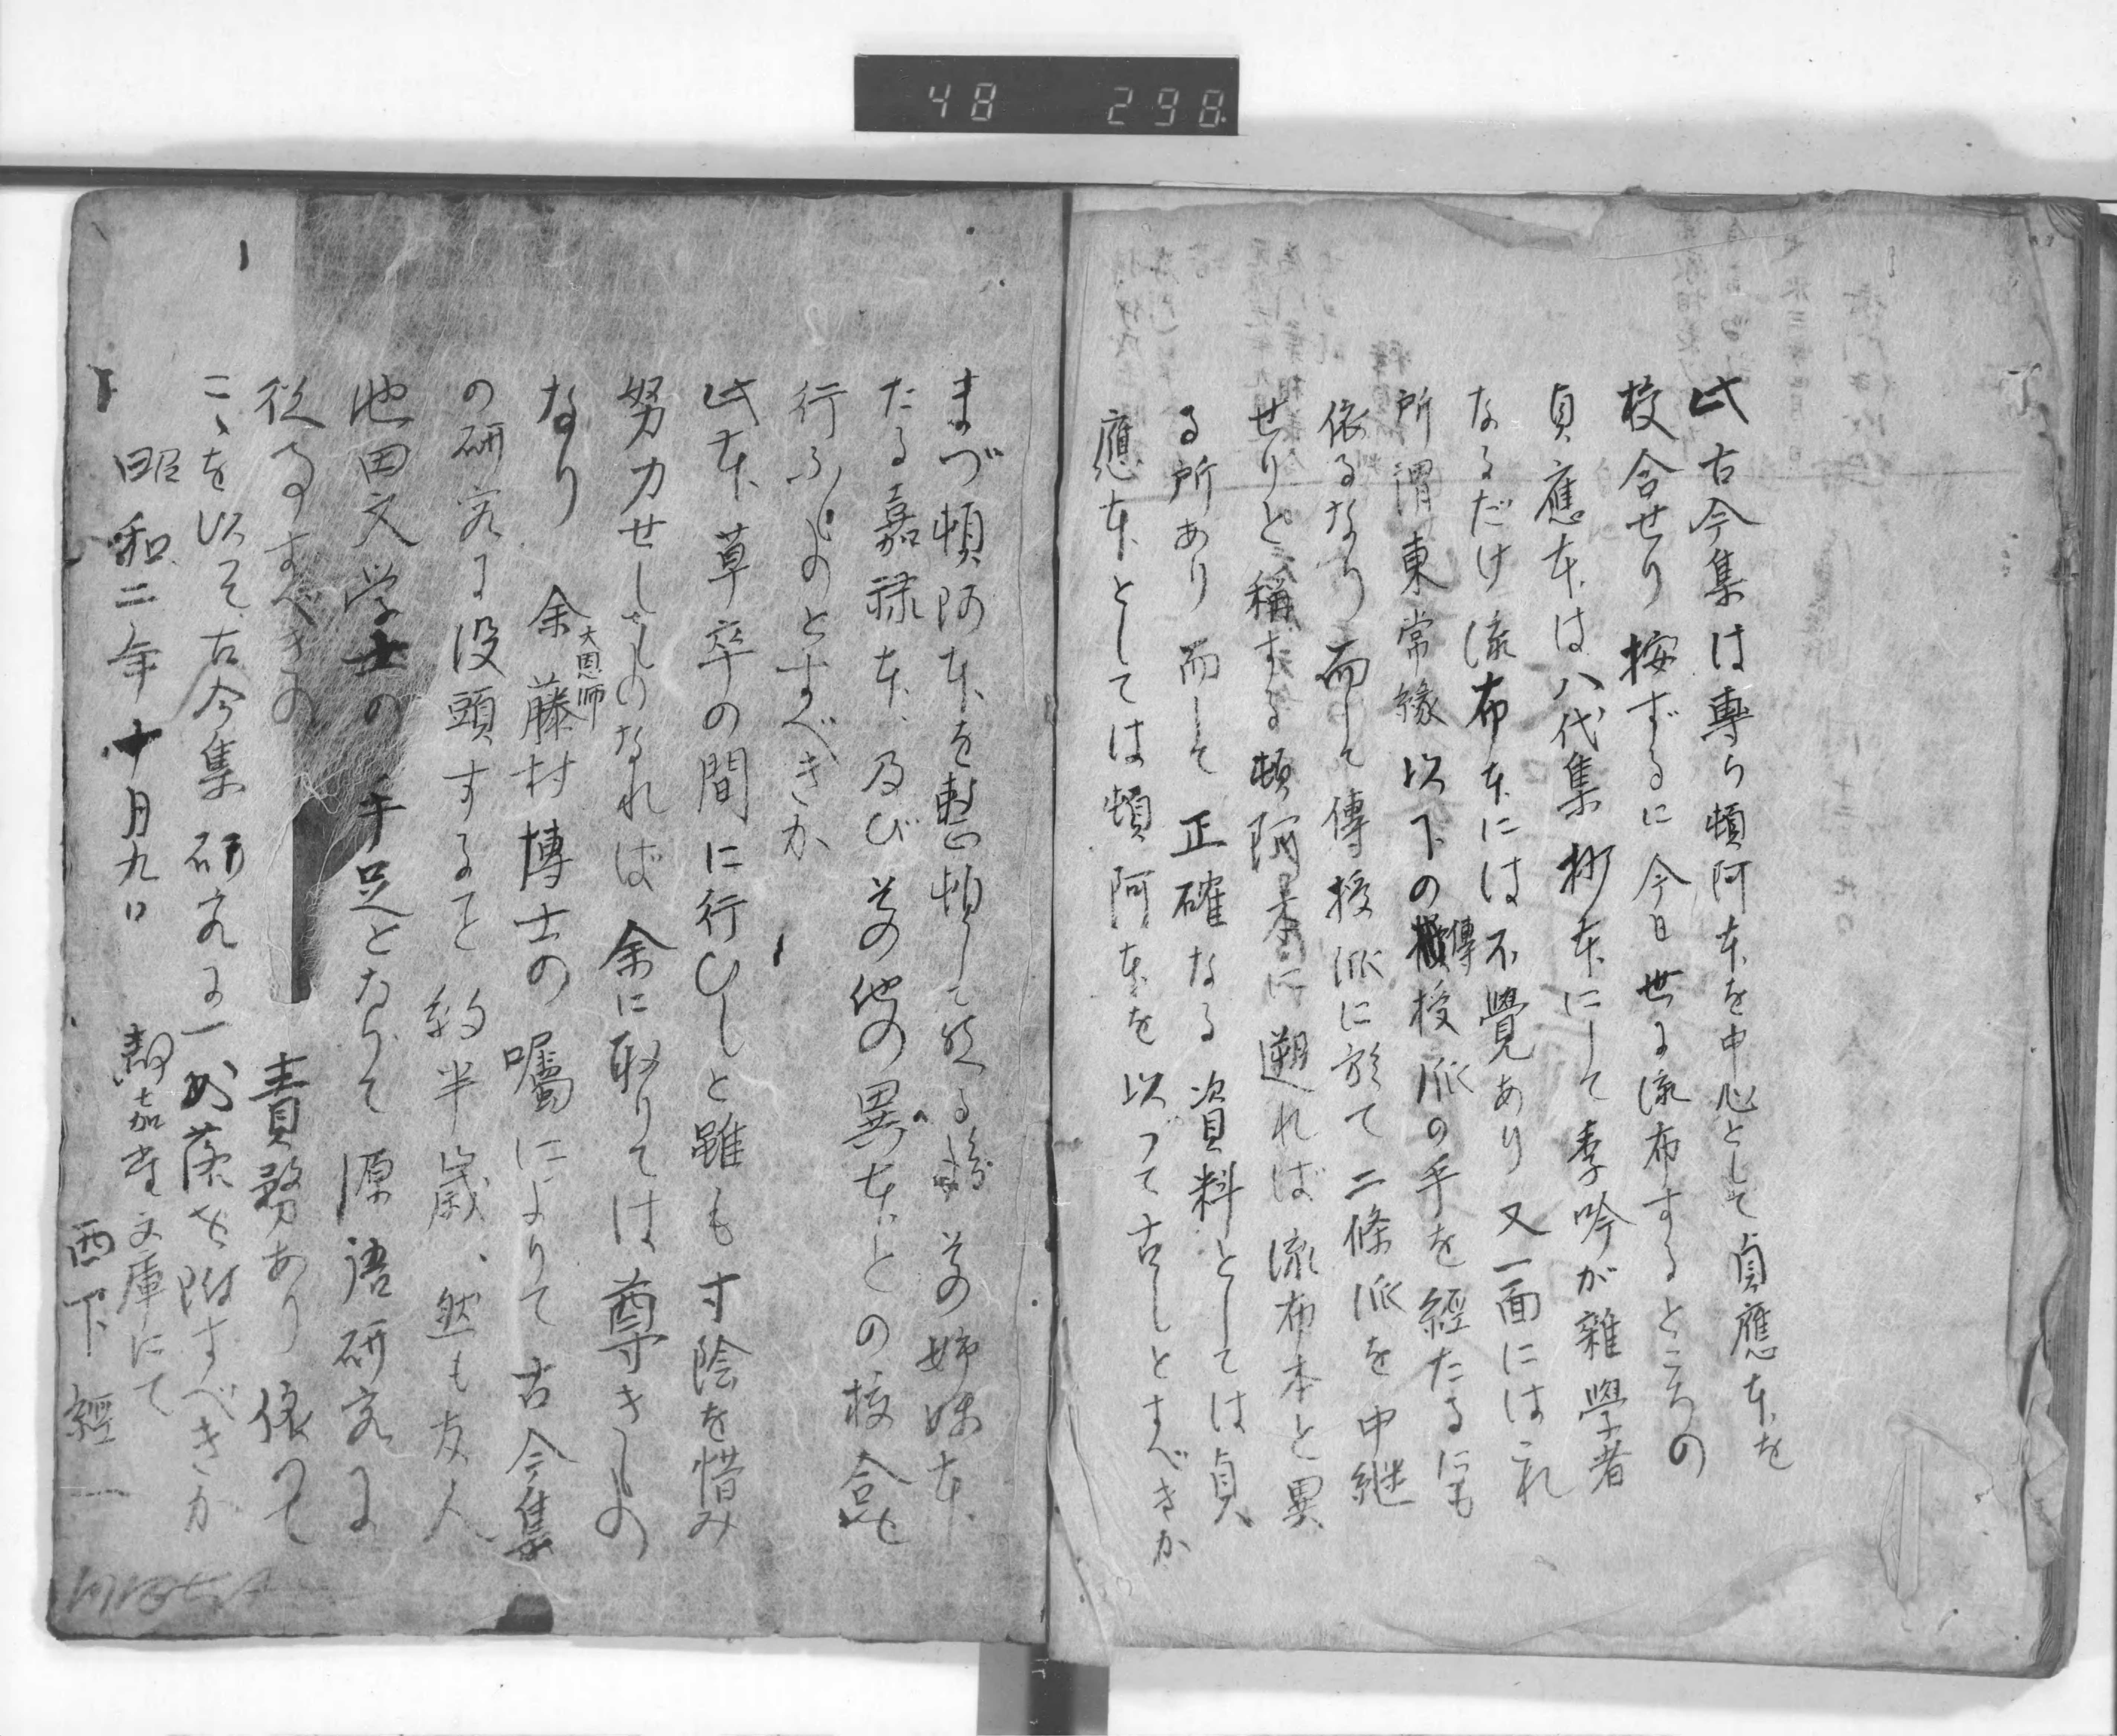 48 298
此古今集は專ら頓阿本を中心として貞應本を
校合せり 按ずるに今日世に流布するところの
貞應本は八代集抄本にして季吟が雜學者
なるだけ流布本には不覺あり 又一面にはこれ
所謂東常緣以下の傳授派の手を經たるにも
依るなり 而して傳授派に於て二條派を中継
せりと稱する頓阿本に遡れば流布本と異
る所あり 而して正確なる資料としては貞
應本としては頓阿本を以つて古しとすべきか
まづ頓阿本を整頓して然る後その姉妹本
たる嘉祿本、及びその他の異本との校合を
行ふものとすべきか
此本草卒の間に行ひしと雖も寸陰を惜み
努力せしものなれば余に取りては尊きもの
なり 余大恩師藤村博士の囑によりて古今集
の研究に没頭すること約半歳、然も友人
池田文学士の手足となりて源語研究に
從事すべきの 責務あり 依つて
こゝを以て古今集研究に一段落を附すべきか
昭和二年十月九日 靜嘉堂文庫にて
西下經一